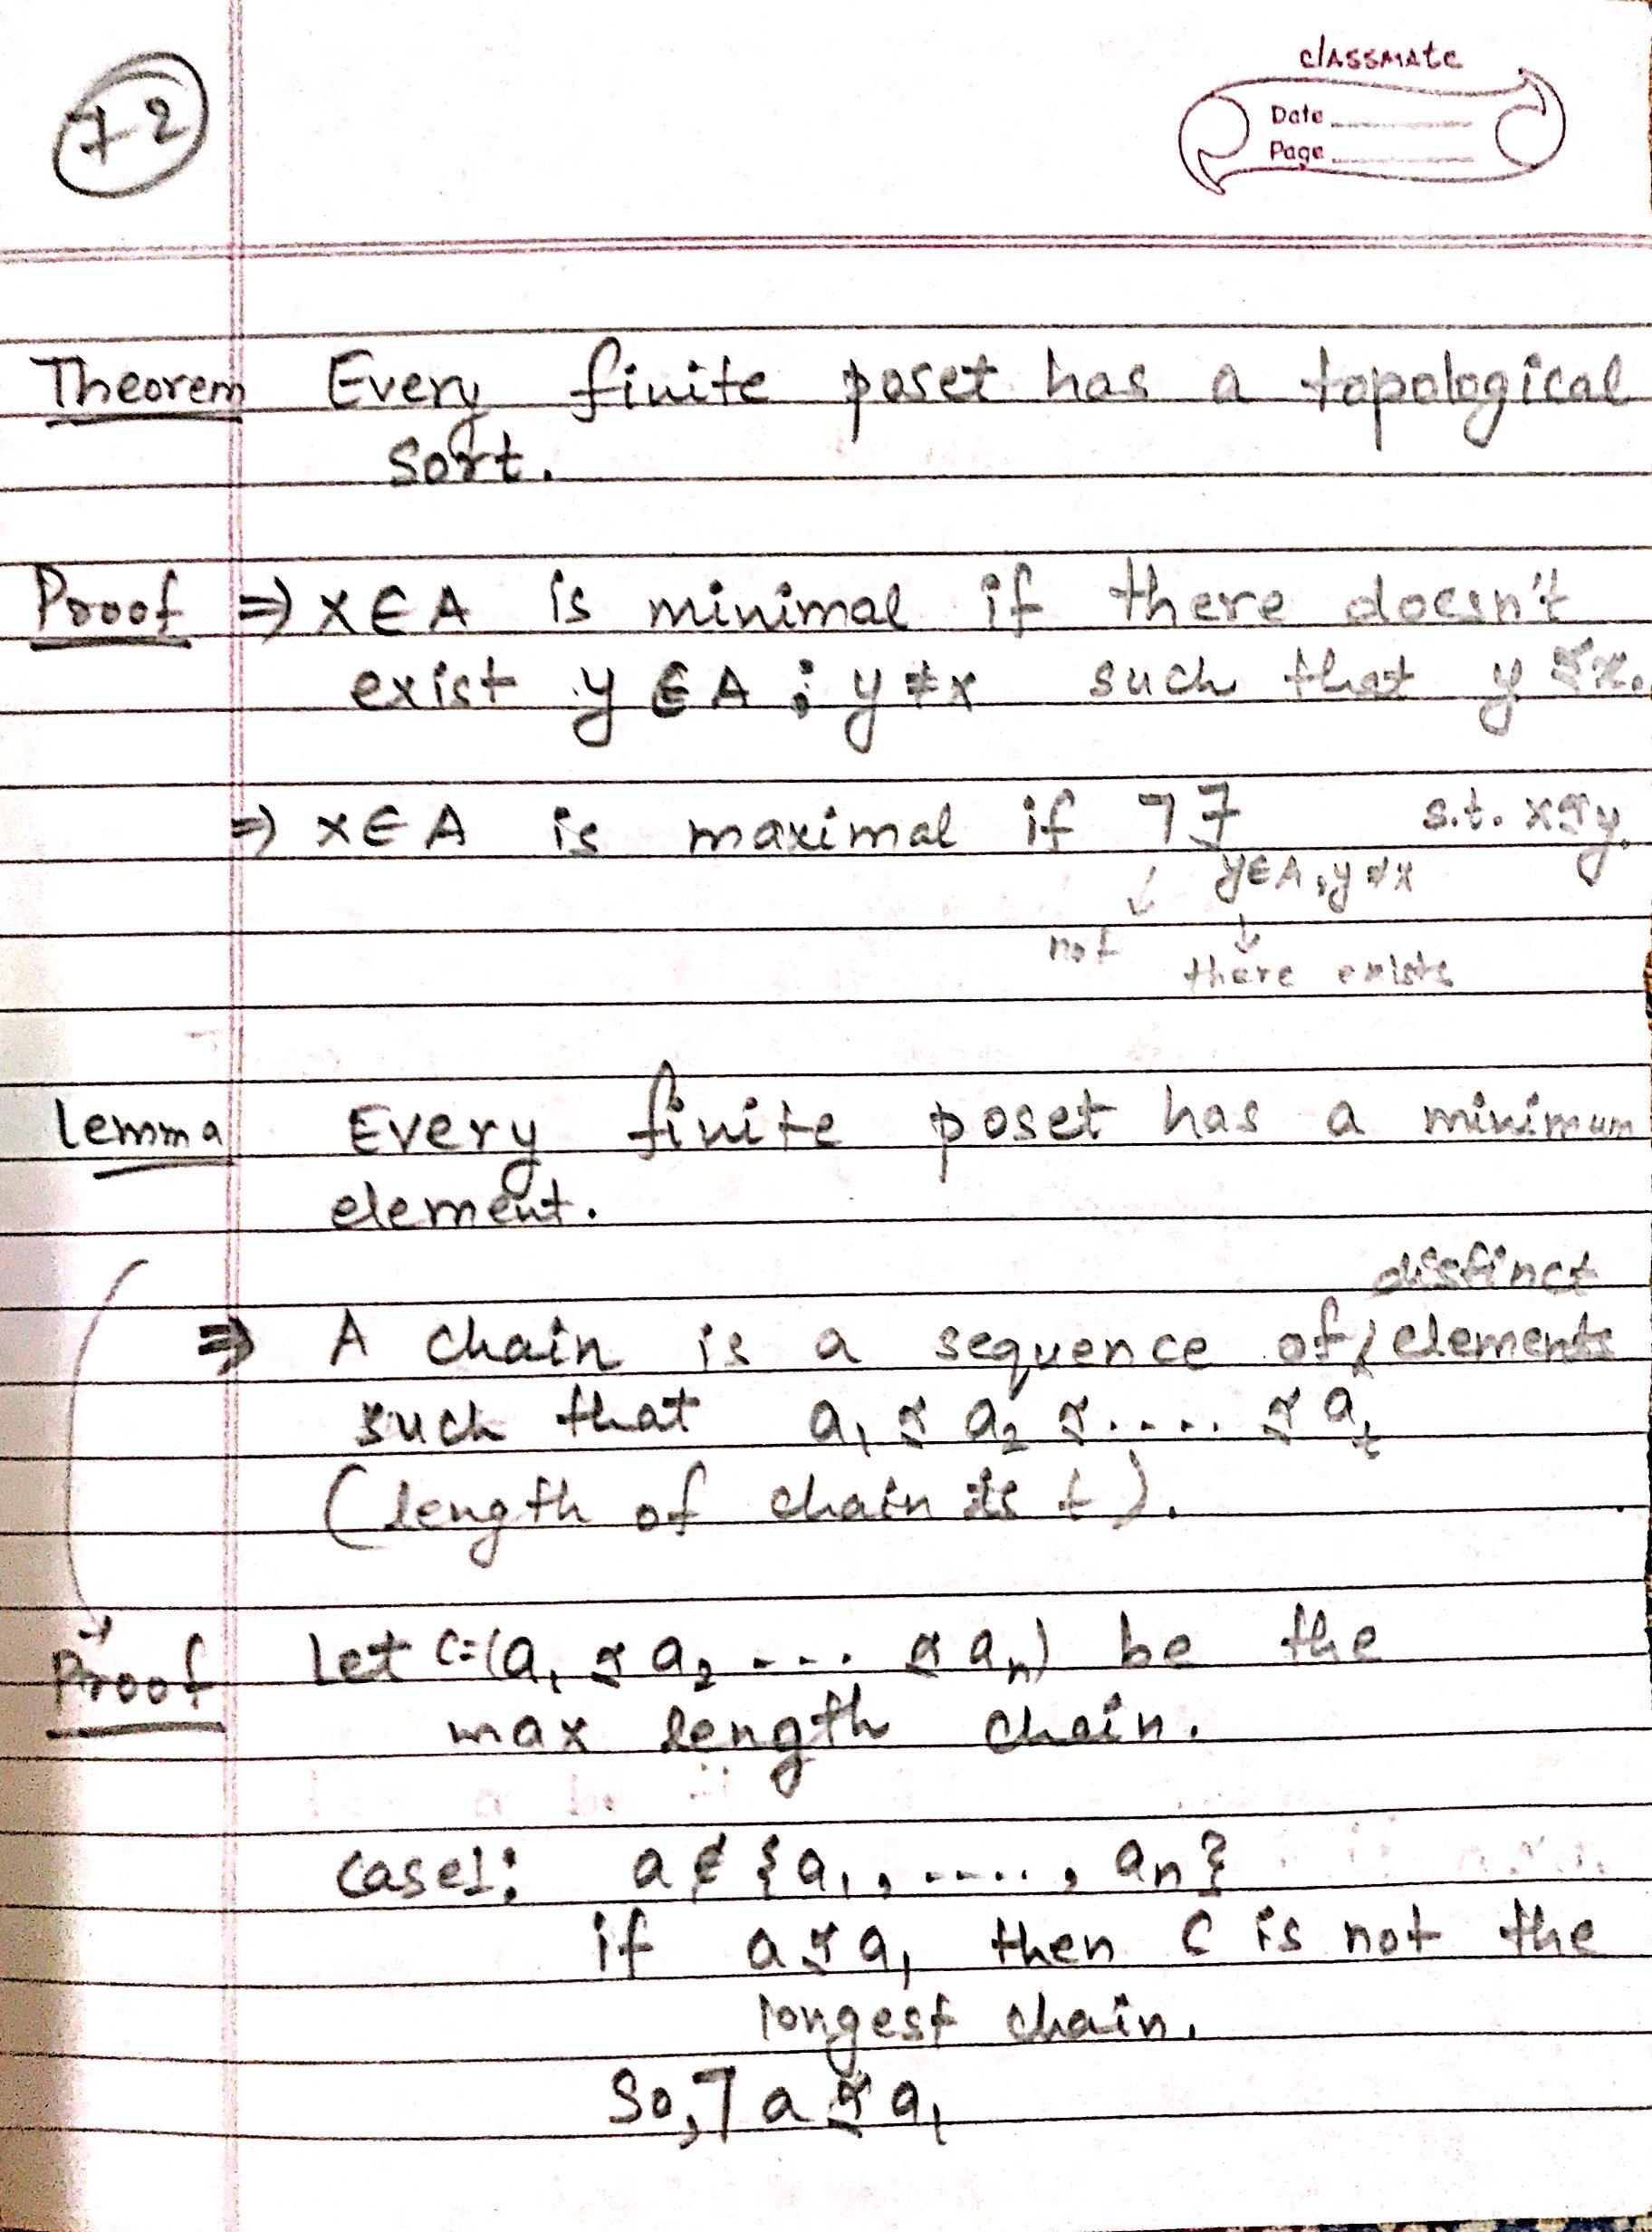 72
classmate
Date
Page
Theorem Every finite poset has a topological
sort.
Proof ⇒ x ∈ A is minimal if there doesn't
exist y ∈ A ; y ≠ x such that y ≼ x.
⇒ x ∈ A is maximal if ¬∃ s.t. x ≼ y.
y ∈ A, y ≠ x
↓ ↓
not there exists
Lemma Every finite poset has a minimum
element.
distinct
⇒ A chain is a sequence of elements
such that a₁ ≼ a₂ ≼ .... ≼ aₜ
(length of chain is t).
Proof Let C=(a₁ ≼ a₂ .... ≼ aₙ) be the
max length chain.
case1: a ∉ {a₁, ....., aₙ}
if a ≼ a₁ then C is not the
longest chain.
So, ¬ a ≼ a₁